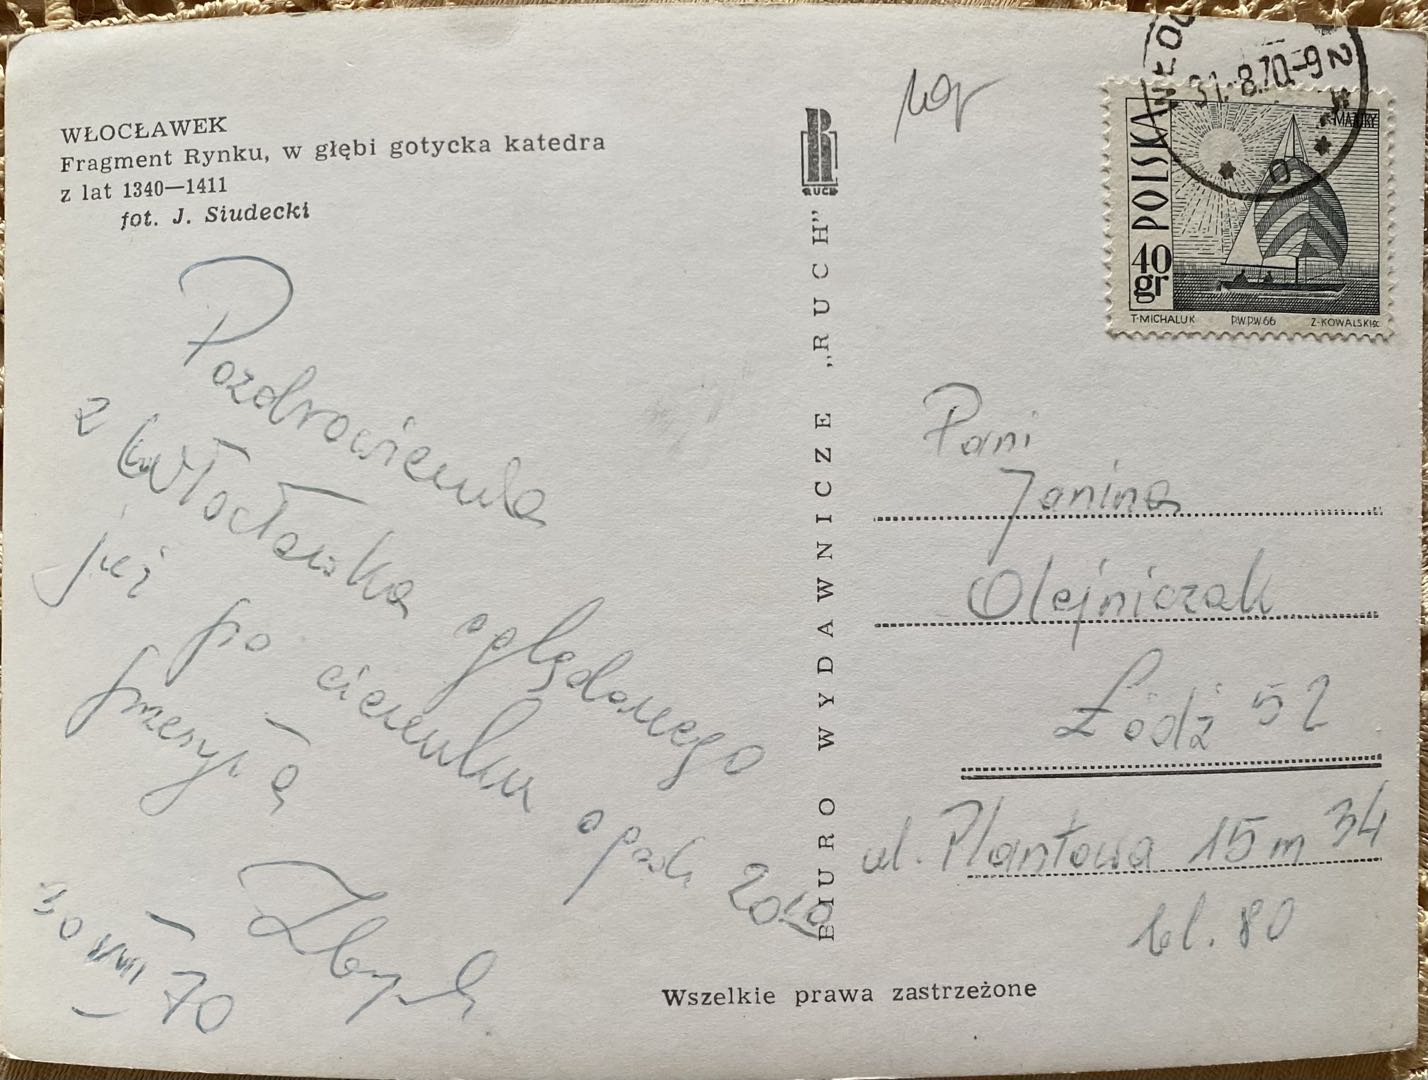 WŁOCŁAWEK
Fragment Rynku, w głębi gotycka katedra
z lat 1340—1411
fot. J. Siudecki
Pozdrowienia
z Włocławka oglądanego
już po ciemku o godz. 20
przesyła
Zbyszek
30 VIII 70
RUCH
BIURO WYDAWNICZE „RUCH”
Wszelkie prawa zastrzeżone
31.-8.70.-9
2
POLSKA
40
gr
MAZURY
T·MICHALUK PWPW 66 Z·KOWALSKI SC.
Pani
Janina
Olejniczak
Łódź 52
ul. Plantowa 15 m 34
bl. 80